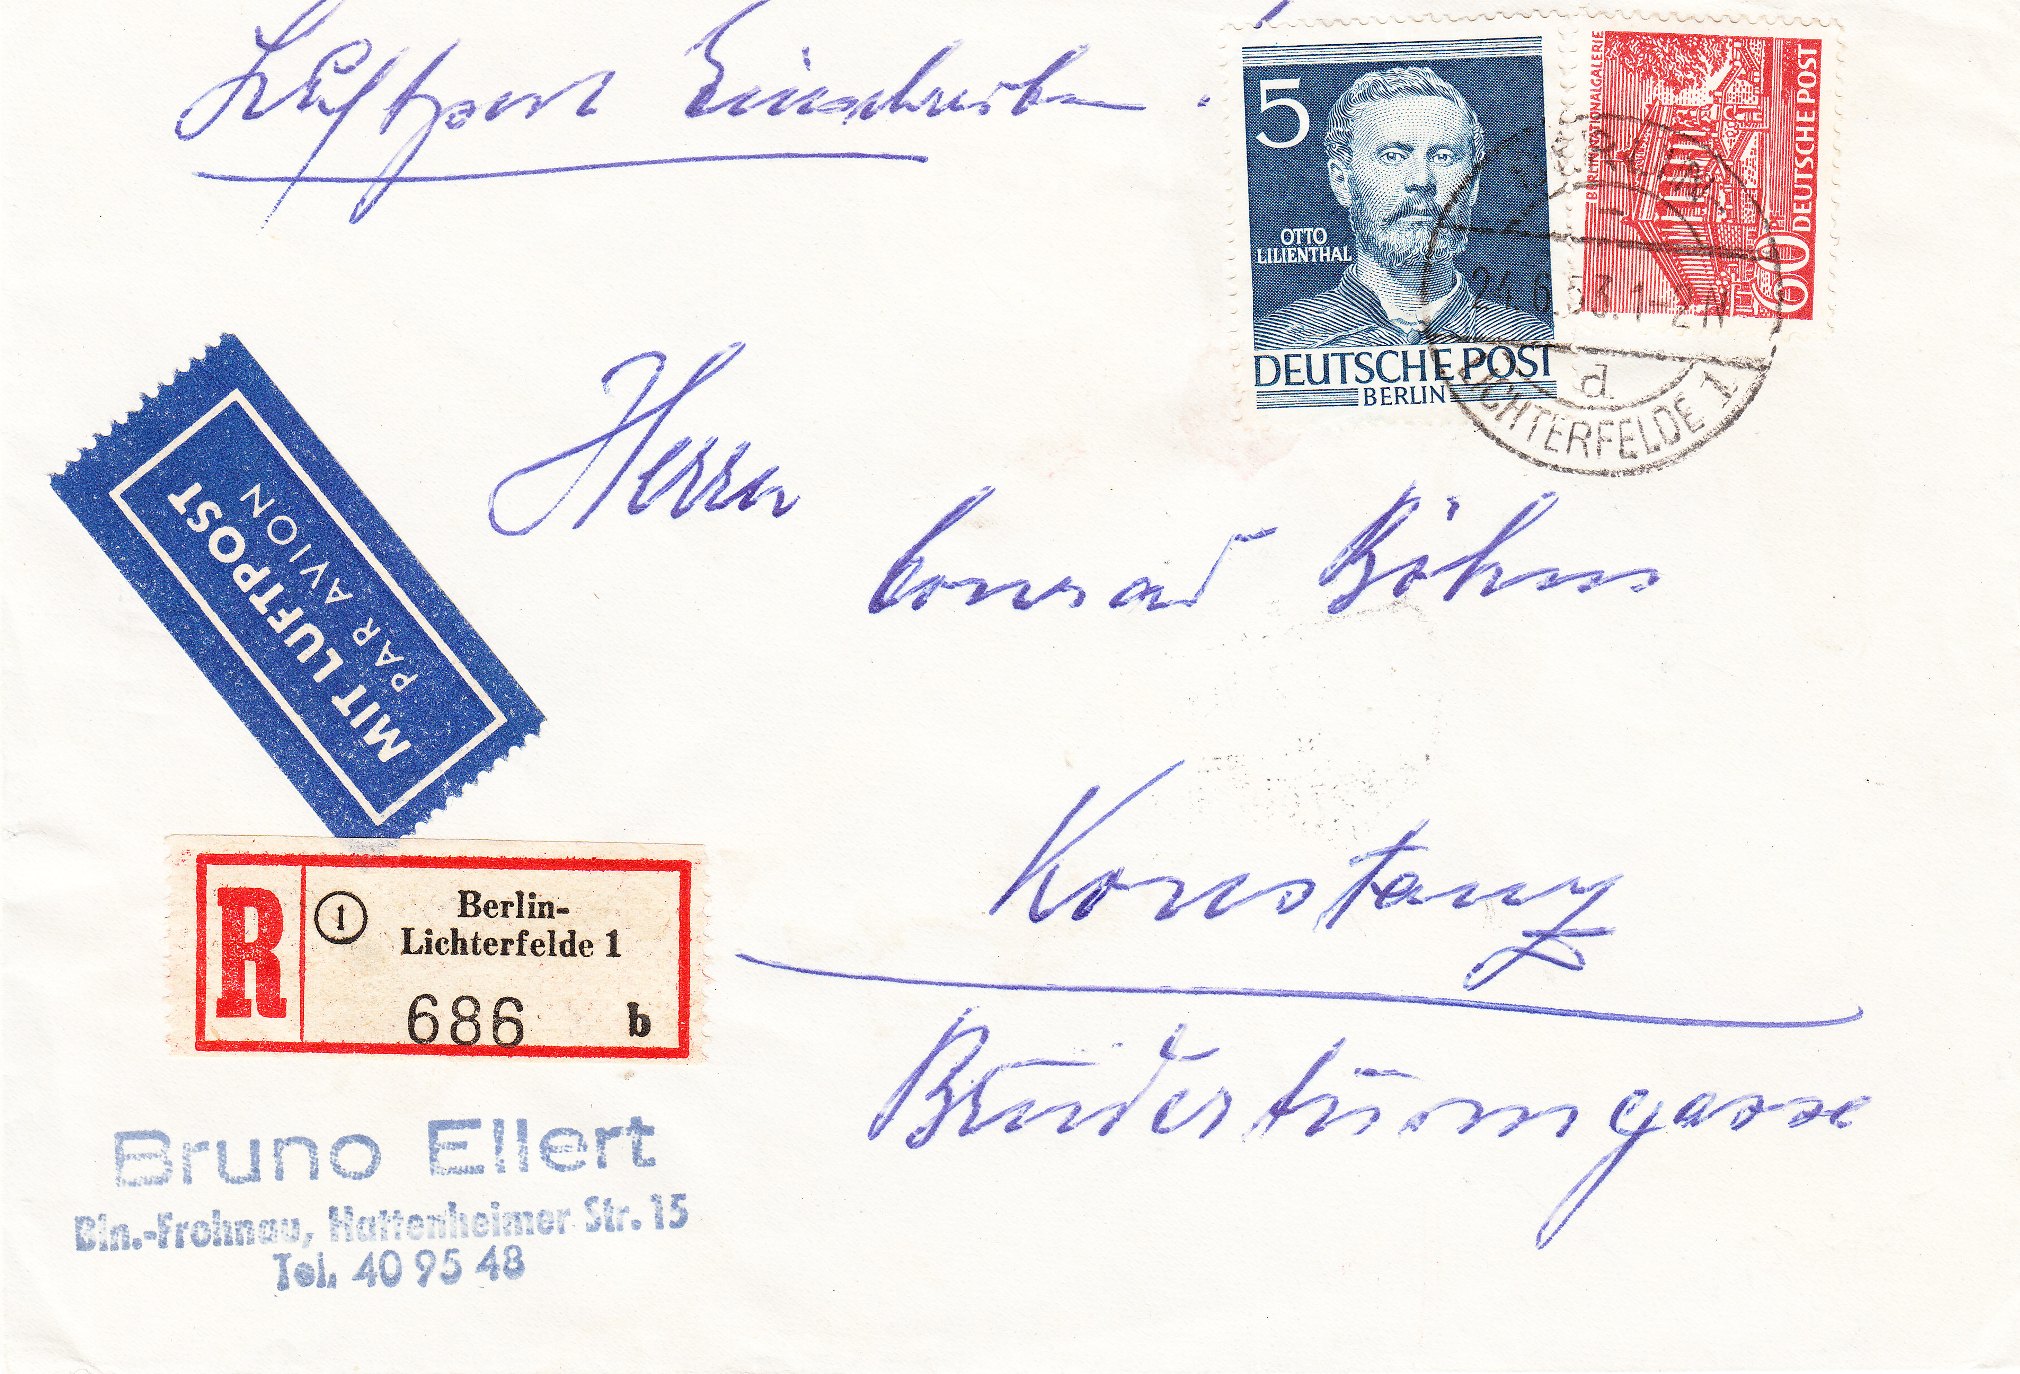 Luftpost Einschreiben
5
OTTO
LILIENTHAL
DEUTSCHE POST
BERLIN
BERLIN NATIONALGALERIE
DEUTSCHE POST
60
BERLIN
24.6.53.1-2N
d
LICHTERFELDE 1
MIT LUFTPOST
PAR AVION
Herrn
Conrad Böhm
Konstanz
Bruderturmgasse
R
1
Berlin-
Lichterfelde 1
686 b
Bruno Ellert
Bln.-Frohnau, Hattenheimer Str. 15
Tel. 40 95 48